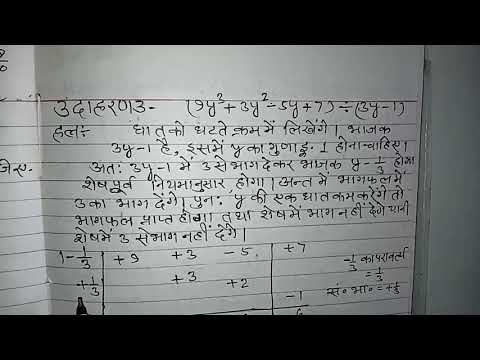 उदाहरण3- (9y³ + 3y² - 5y + 7) ÷ (3y-1)
हल:- घात को घटते क्रम में लिखेंगे। भाजक
3y-1 है, इसमें y का गुणाङ्क 1 होना चाहिए।
अतः 3y-1 में 3 से भाग देकर भाजक y-1/3 होगा
शेष पूर्व नियमानुसार होगा। अन्त में भागफल में
3 का भाग देंगे। पुनः y की एक घात कम करेंगे तो
भागफल प्राप्त होगा तथा शेष में भाग नहीं देंगे यानी
शेष में 3 से भाग नहीं देंगे।
1 - 1/3 + 9 + 3 - 5 + 7
+ 1/3 + 3 + 2
- 1
-1/3 का परावर्त्य
= 1/3
सं॰ भा॰ = +1/3